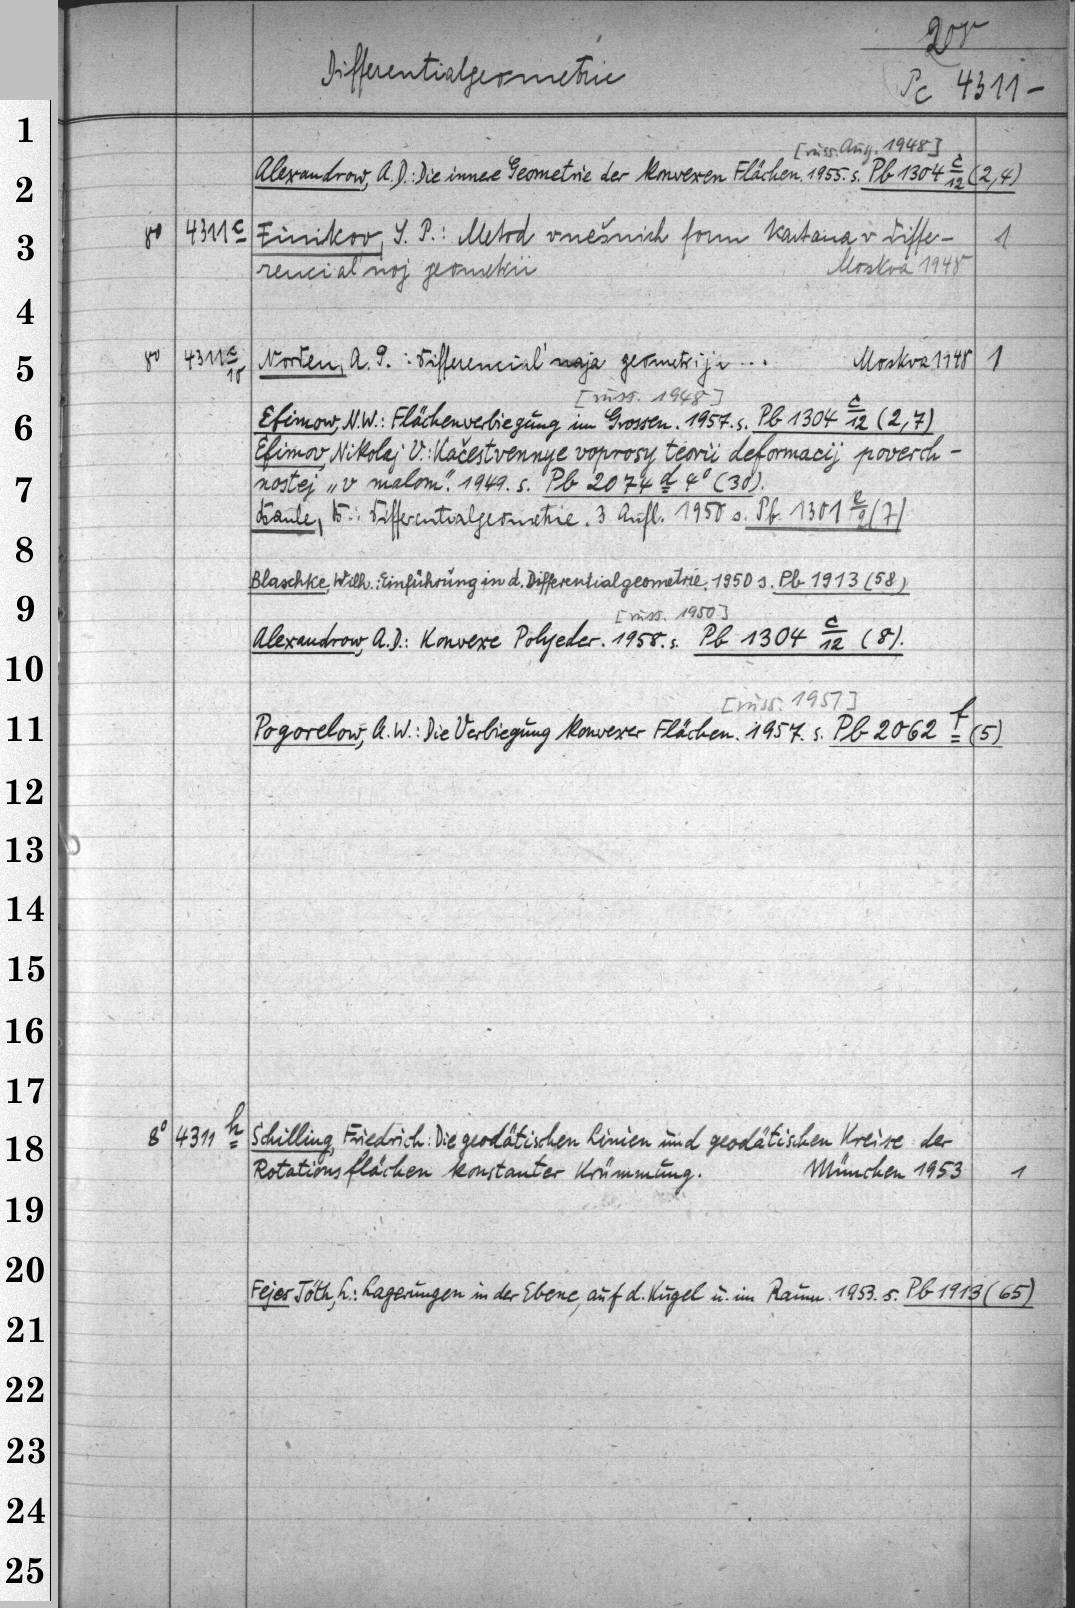 208
Differentialgeometrie
Pc 4311-
1
[russ. Ausg. 1948]
2 Alexandrow, A.D.: Die innere Geometrie der konvexen Flächen. 1955. s. Pb 1304 c/12 (2,4)
3 8° 4311 c Finikov, S. P.: Metod vnešnich form Kartana v diffe- 1
rencial'noj geometrii Moskva 1948
4
5 8° 4311 c/10 Norden, A. P.: Differencial'naja geometrija... Moskva 1948 1
[russ. 1948]
6 Efimow, N.W.: Flächenverbiegung im Grossen. 1957. s. Pb 1304 c/12 (2,7)
Efimov, Nikolaj V.: Kačestvennye voprosy teorii deformacij poverch-
7 nostej „v malom". 1949. s. Pb 2074 d 4° (30).
Baule, B.: Differentialgeometrie. 3 Aufl. 1950 s. Pb 1301 k/9 (7)
8
Blaschke, Wilh.: Einführung in d. Differentialgeometrie. 1950 s. Pb 1913 (58)
9
[russ. 1950]
Alexandrow, A.D.: Konvexe Polyeder. 1958. s. Pb 1304 c/12 (8).
10
[russ. 1951]
11 Pogorelow, A.W.: Die Verbiegung konvexer Flächen. 1957. s. Pb 2062 f (5)
12
13
14
15
16
17
18 8° 4311 h Schilling, Friedrich: Die geodätischen Linien und geodätischen Kreise der
Rotationsflächen konstanter Krümmung. München 1953 1
19
20
Fejes Tóth, L.: Lagerungen in der Ebene, auf d. Kugel u. im Raum. 1953. s. Pb 1913 (65)
21
22
23
24
25